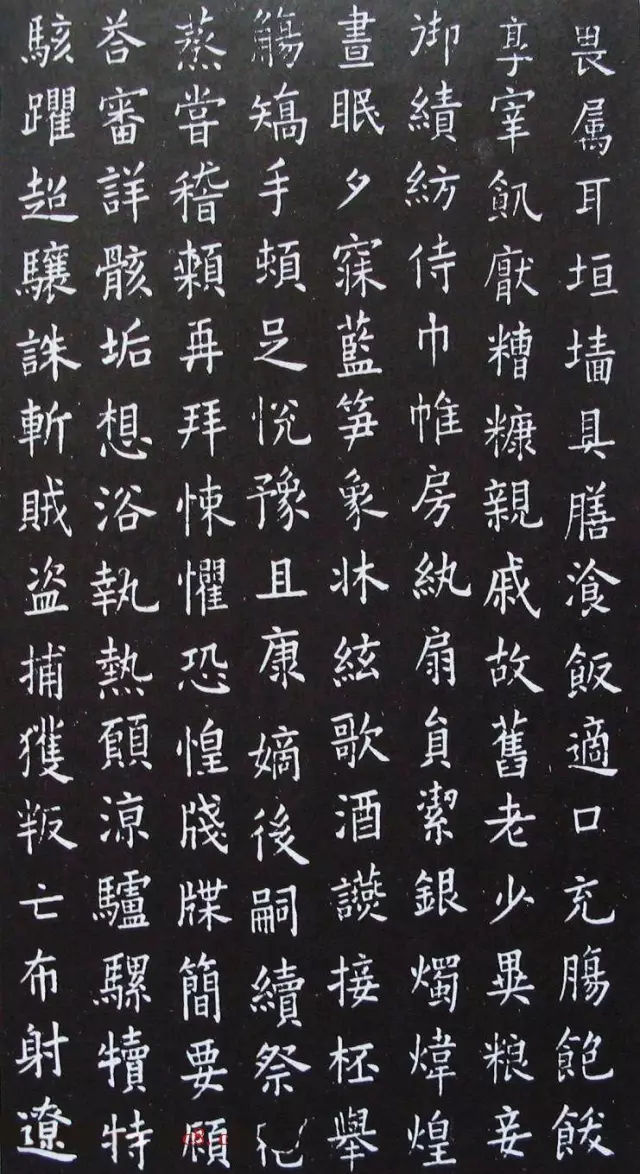 畏属耳垣墻具膳飡飯適口充腸飽飫
享宰飢厭糟糠親戚故舊老少異粮妾
御績紡侍巾帷房紈扇貟潔銀燭煒煌
晝眠夕寐藍笋象牀絃歌酒讌接柸舉
觴矯手頓足悅豫且康嫡後嗣續祭祀
蒸嘗稽顙再拜悚懼恐惶牋牒簡要顧
荅審詳骸垢想浴執熱願涼驢騾犢特
駭躍超驤誅斬賊盗捕獲叛亡布射遼